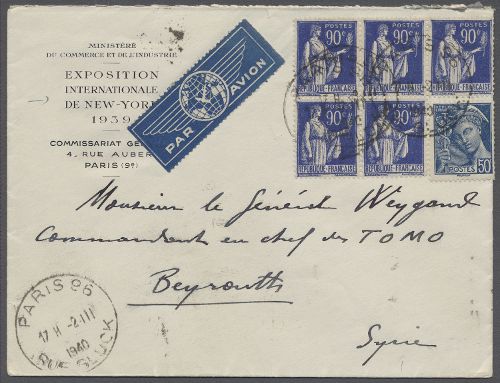 MINISTÈRE
DU COMMERCE et DE L'INDUSTRIE
EXPOSITION
INTERNATIONALE
DE NEW-YORK
1939
COMMISSARIAT GÉ
4, RUE AUBER
PARIS (9e)
PAR AVION
POSTES
90c
RÉPUBLIQUE FRANÇAISE
POSTES
90c
RÉPUBLIQUE FRANÇAISE
POSTES
90c
RÉPUBLIQUE FRANÇAISE
90c
RÉPUBLIQUE FRANÇAISE
90c
RÉPUBLIQUE FRANÇAISE
POSTES 50
Monsieur le Général Weygand
Commandant en chef des TOMO
Beyrouth
Syrie
PARIS 96
17 H -2.III
1940
RUE GLUCK